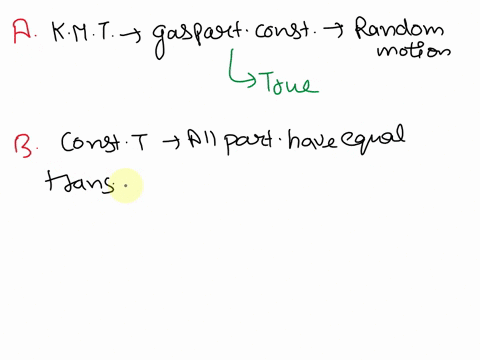 A. K.M.T. → gaspart. const. → Random motion
↳ True
B. Const. T → All part. have equal
trans.